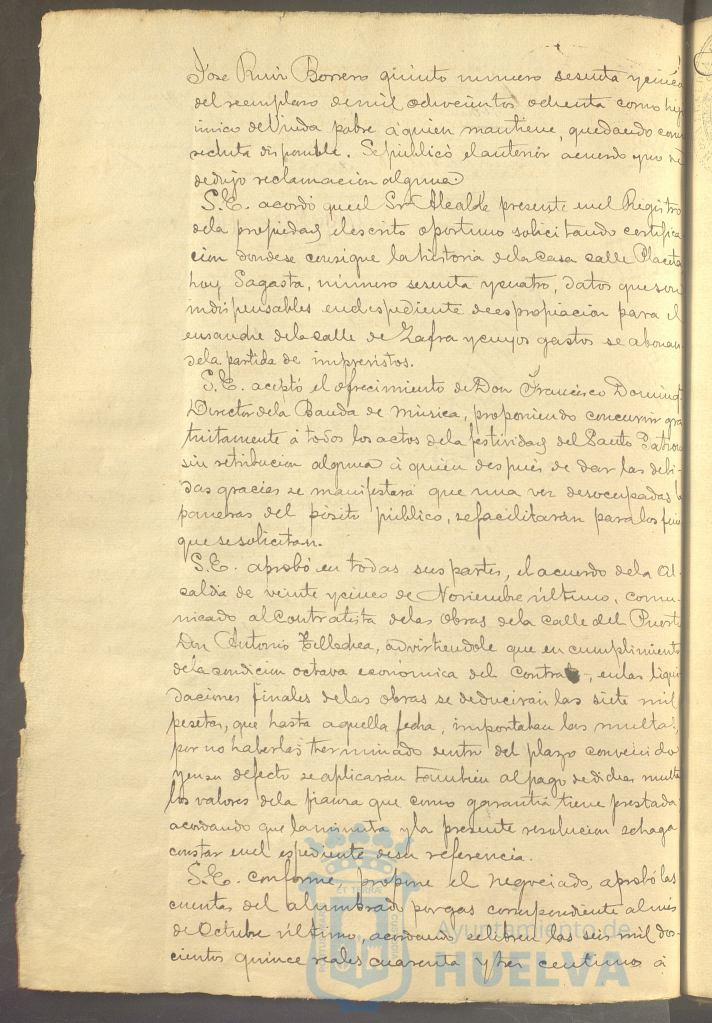 Jose Ruiz Borrero quinto numero sesenta y cinco
del reemplazo de mil ochocientos ochenta como hijo
unico de Viuda pobre á quien mantiene, quedando como
recluta disponible. Se publicó el anterior acuerdo y no se
dedujo reclamacion alguna
S.E. acordó que el Sr Alcalde presente en el Registro
de la propiedad el escrito oportuno solicitando certifica
cion donde se consigue la historia de la casa calle Placeta
hoy Sagasta, número sesenta y cuatro, datos que son
indispensables en el espediente de espropiacion para el
ensanche de la calle de Zafra y cuyos gastos se abonan
de la partida de imprevistos.
S.E. aceptó el ofrecimiento de Don Francisco Doming
Director de la Banda de musica, proponiendo concurrir gra
tuitamente á todos los actos de la festividad del Santo Patron
sin retribucion alguna á quien después de dar las debi-
das gracias se manifestará que una vez desocupadas l
paneras del pósito público, se facilitarán para los fin
que se solicitan.
S.E. aprobó en todas sus partes, el acuerdo de la Al-
caldia de veinte y cinco de Noviembre último, comu-
nicado al Contratista de las obras de la calle del Puerto
Don Antonio Telleckea, advirtiendole que en cumplimiento
de la condicion octava económica del Contrato, en las liqui
daciones finales de las obras se deduciran las siete mil
pesetas, que hasta aquella fecha, importaban las multas,
por no haberlas terminado dentro del plazo convenido
y en su defecto se aplicarán tambien al pago de dichas multa
los valores de la fianza que como garantia tiene prestada
acordando que la minuta y la presente resolucion se haga
constar en el espediente de su referencia.
S.E. conforme propone el negociado, aprobó las
cuentas del alumbrado por gas correspondiente al mes
de Octubre último, acordando se libren las seis mil dos-
cientos quince reales cuarenta y tres centimos á
Ayuntamiento de
HUELVA